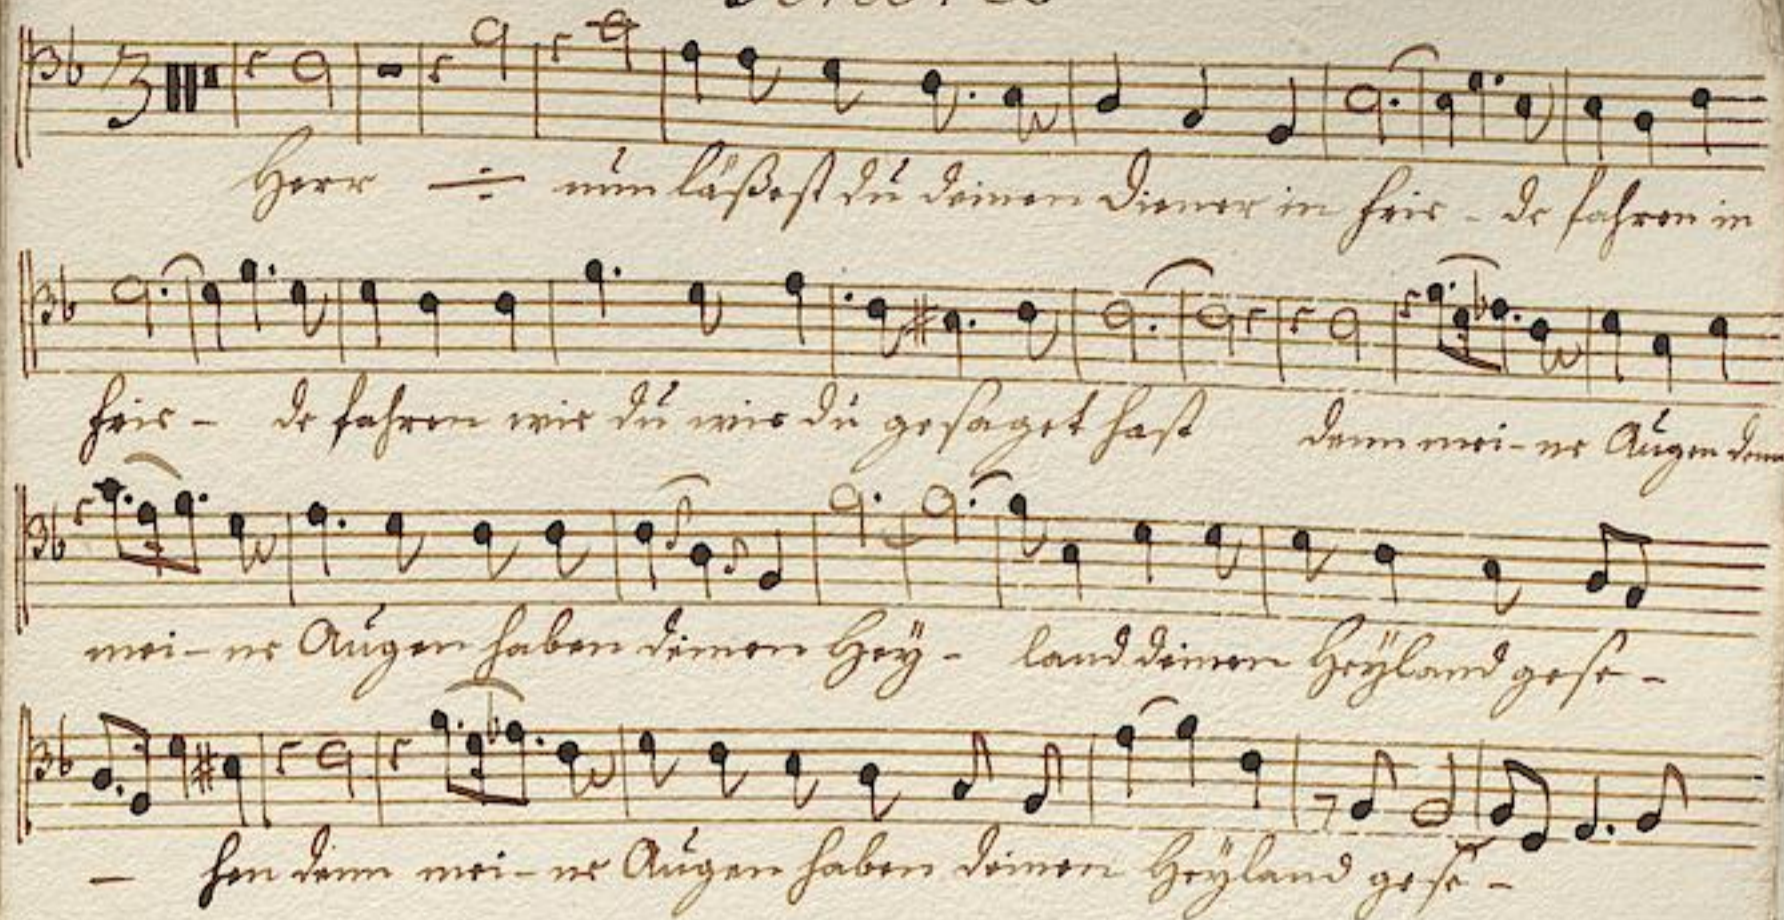 Herr ÷ nun läßest du deinen Diener in frie - de fahren in
frie - de fahren wie du wie du gesaget hast denn mei - ne Augen denn
mei - ne Augen haben deinen Hey - land deinen Heyland gese -
- hen denn mei - ne Augen haben deinen Heyland gese -